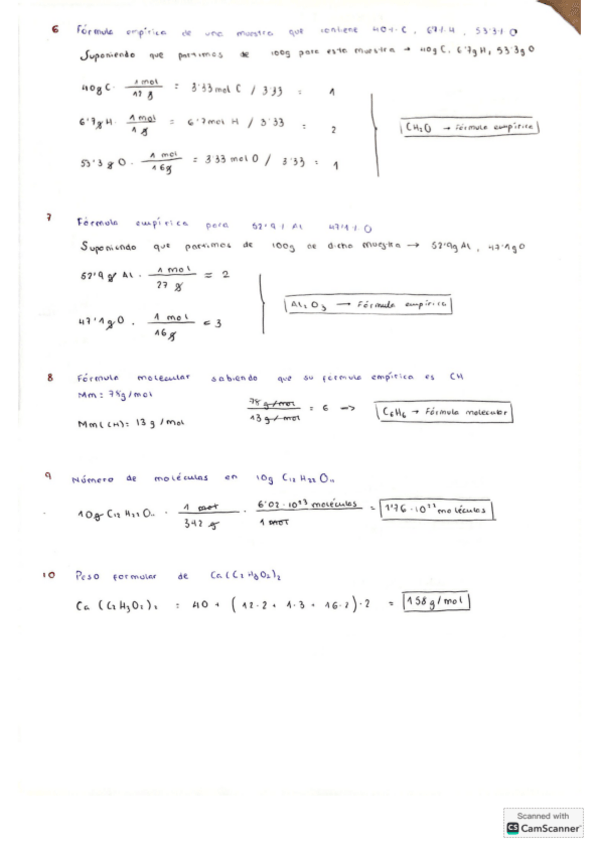 6 Fórmula empírica de una muestra que contiene 40% C, 6'7% H, 53'3% O
Suponiendo que partimos de 100g para esta muestra → 40g C, 6'7g H, 53'3g O
40g C · 1 mol / 12 g = 3'33 mol C / 3'33 = 1
6'7g H · 1 mol / 1 g = 6'7 mol H / 3'33 = 2
CH₂O → Fórmula empírica
53'3 g O · 1 mol / 16g = 3'33 mol O / 3'33 = 1
7 Fórmula empírica para 52'9% Al 47'1% O
Suponiendo que partimos de 100g de dicha muestra → 52'9g Al, 47'1g O
52'9 g Al · 1 mol / 27 g = 2
Al₂O₃ → Fórmula empírica
47'1g O · 1 mol / 16 g = 3
8 Fórmula molecular sabiendo que su fórmula empírica es CH
Mm: 78g/mol
Mm(CH): 13 g/mol 78 g/mol / 13 g/mol = 6 => C₆H₆ → Fórmula molecular
9 Número de moléculas en 10g C₁₂H₂₂O₁₁
10g C₁₂H₂₂O₁₁ · 1 mol / 342 g · 6'02·10²³ moléculas / 1 mol = 1'76·10²² moléculas
10 Peso formular de Ca(C₂H₃O₂)₂
Ca (C₂H₃O₂)₂ = 40 + (12·2 + 1·3 + 16·2)·2 = 158g/mol
Scanned with
CS CamScanner